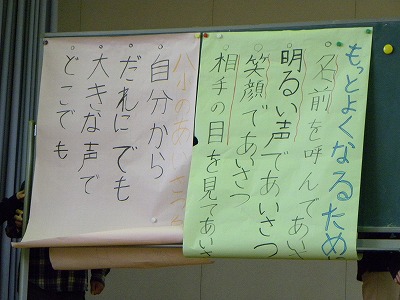 もっとよくなるため
○名前を呼んであい
○明るい声であいさつ
○笑顔であいさつ
○相手の目を見てあいさ
八小のあいさつ
○自分から
○だれにでも
○大きな声で
○どこでも